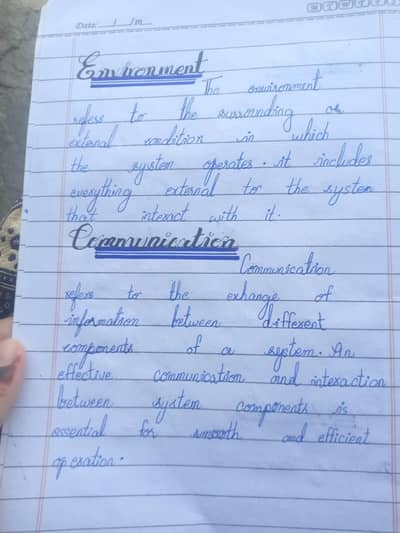 Date: / /
Environment
The environment
refers to the surrounding or
external condition in which
the system operates. it includes
everything external to the system
that interact with it.
Communication
Communication
refers to the exhange of
information between different
components of a system. An
effective communication and interaction
between system components is
essential for smooth and efficient
operation.